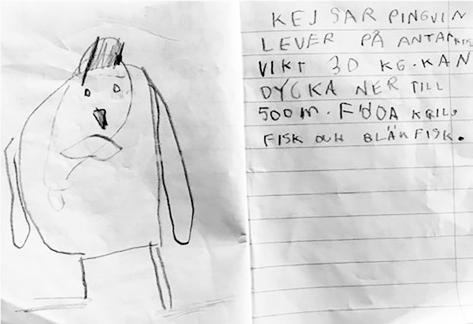 KEJSAR PINGVIN
LEVER PÅ ANTARKTIS
VIKT 30 KG. KAN
DYCKA NER TILL
500 m. FÖDA KRILL,
FISK och BLÄKFISK.